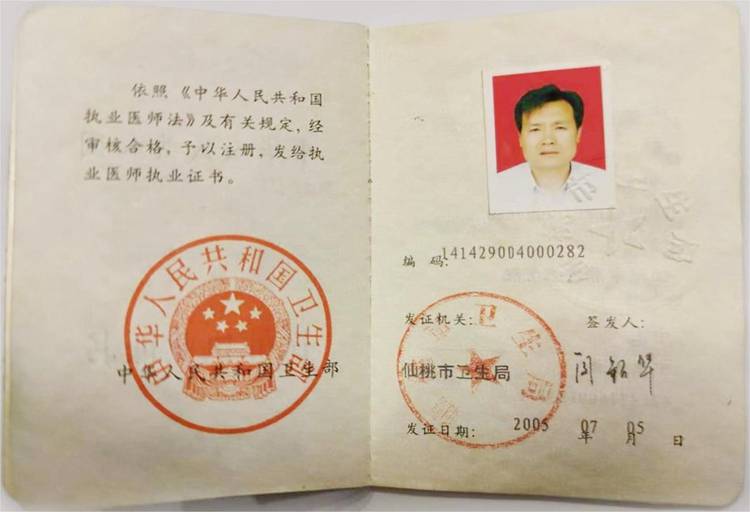 依照《中华人民共和国
执业医师法》及有关规定，经
审核合格，予以注册，发给执
业医师执业证书。
中华人民共和国卫生部
中华人民共和国卫生部
编 码：141429004000282
发证机关： 签发人：
仙桃市卫生局
卫生局
发证日期： 2005 年 07 月 05 日